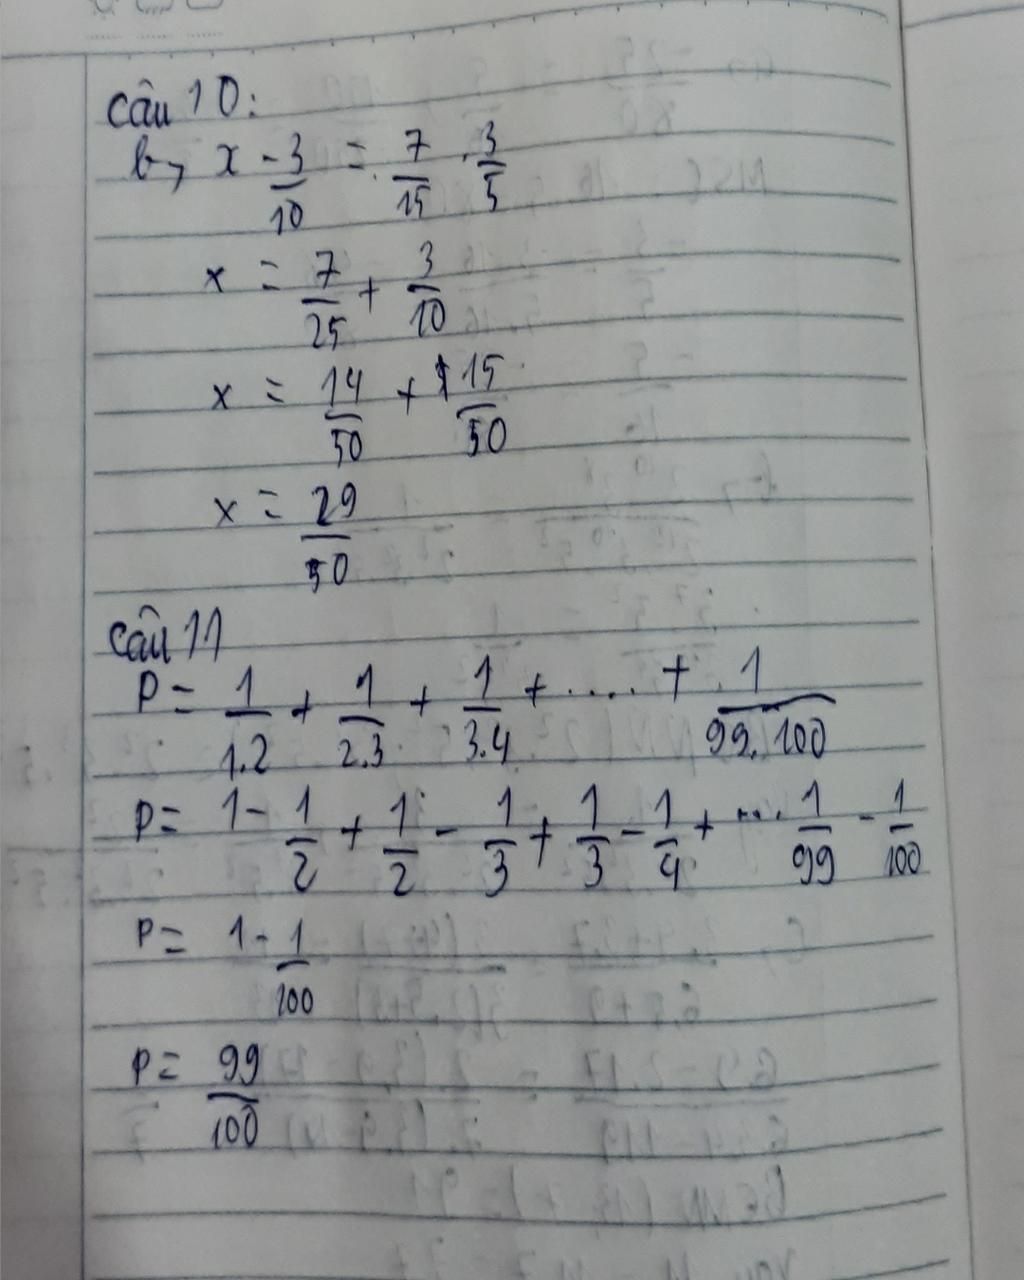 Câu 10:
b, x - 3/10 = 7/15 . 3/5
x = 7/25 + 3/10
x = 14/50 + 15/50
x = 29/50
Câu 11
P = 1/1.2 + 1/2.3 + 1/3.4 + .... + 1/99.100
P = 1 - 1/2 + 1/2 - 1/3 + 1/3 - 1/4 + .... 1/99 - 1/100
P = 1 - 1/100
P = 99/100